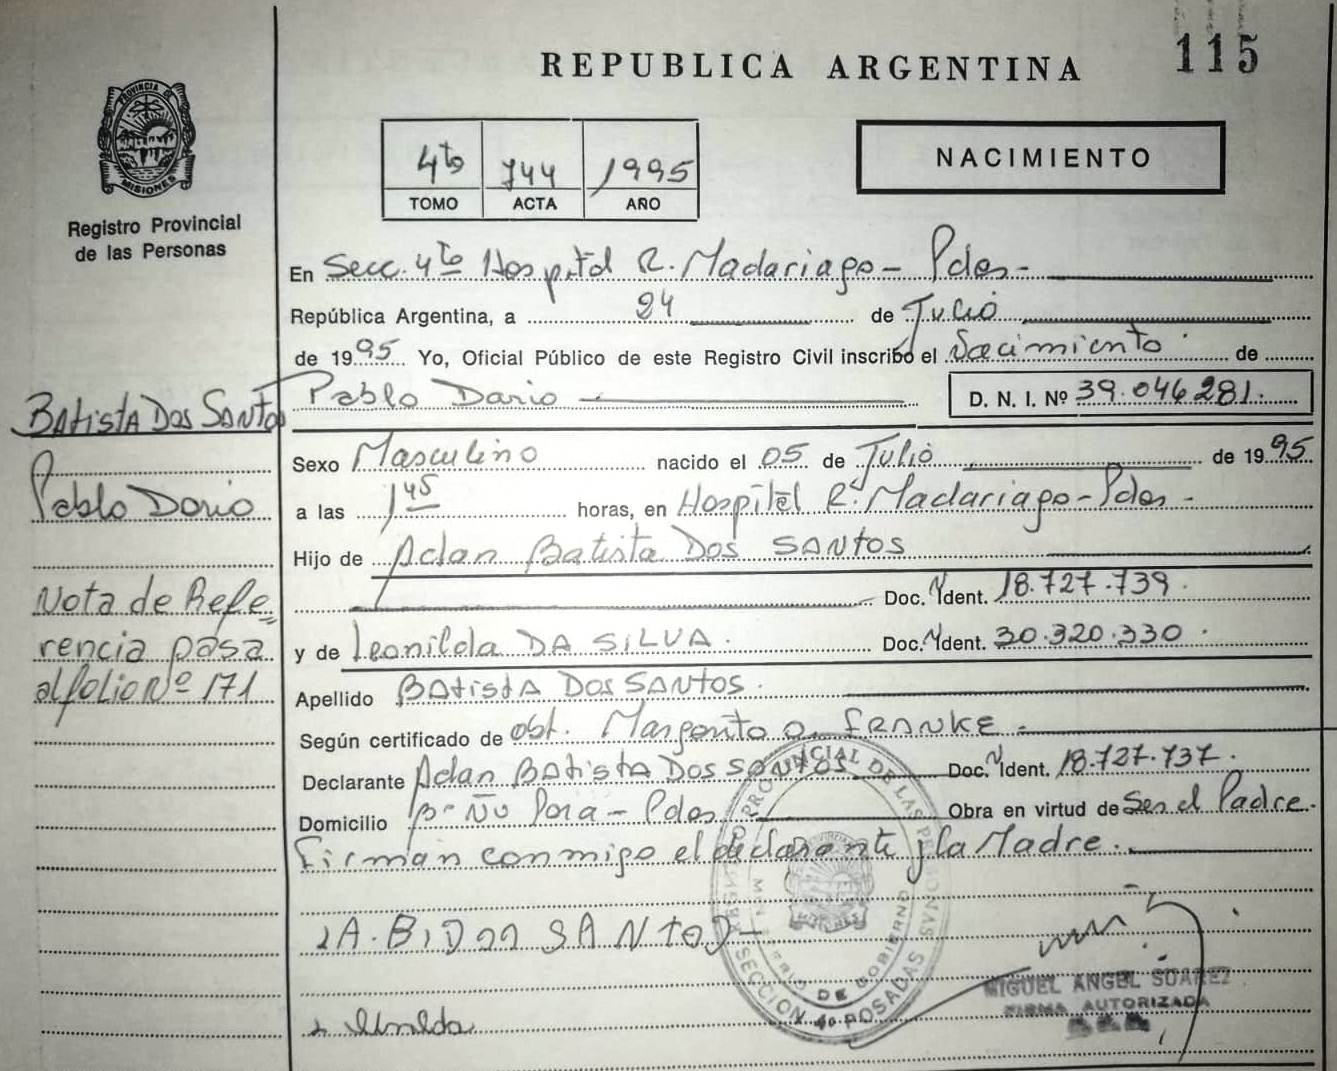 115
REPUBLICA ARGENTINA
PROVINCIA DE
MISIONES
Registro Provincial
de las Personas
4to 744 1995
TOMO ACTA AÑO
NACIMIENTO
En Secc. 4to Hospital R. Madariaga - Pdas -
República Argentina, a 24 de Julio
de 1995 Yo, Oficial Público de este Registro Civil inscribo el Nacimiento de
Pablo Dario D. N. I. Nº 39.046.281.
Sexo Masculino nacido el 05 de Julio de 1995
a las 1 45 horas, en Hospital R. Madariaga - Pdas -
Hijo de Adan Batista Dos SANTOS
Doc. Ident. 18.727.739.
y de Leonilda DA SILVA. Doc. Ident. 30.320.330.
Apellido BAtistA Dos SANtos.
Según certificado de obt. Margarita FRANKE.
Declarante Adan BAtistA Dos SANtos Doc. Ident. 18.727.737.
Domicilio Bº Ñu Pora - Pdas Obra en virtud de Ser el Padre.
Firman conmigo el declarante y la Madre.
SANtOS
BAtistA Dos SANtos
Pablo Dario
Nota de Refe
rencia pasa
al folio Nº 171
PROVINCIAL DE LAS PERSONAS
MINISTERIO DE GOBIERNO
SECCION 4a POSADAS
MIGUEL ANGEL SUAREZ
FIRMA AUTORIZADA